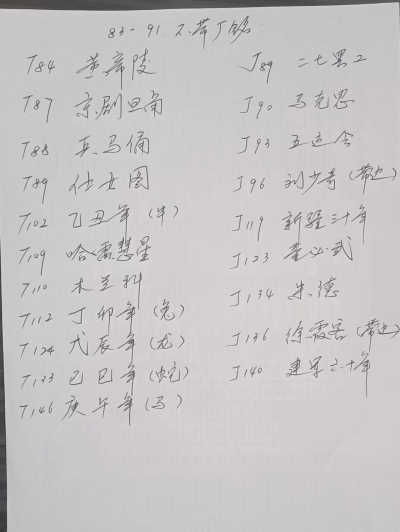 83-91.不带厂铭
T84 黄帝陵
T87 京剧旦角
T88 兵马俑
T89 仕女图
T102 乙丑年（牛）
T109 哈雷慧星
T110 木兰科
T112 丁卯年（兔）
T124 戊辰年（龙）
T133 己巳年（蛇）
T146 庚午年（马）
J89 二七罢工
J90 马克思
J93 五运会
J96 刘少奇（带边）
J119 新疆三十年
J123 董必武
J134 朱德
J136 徐霞客（带边）
J140 建军六十年